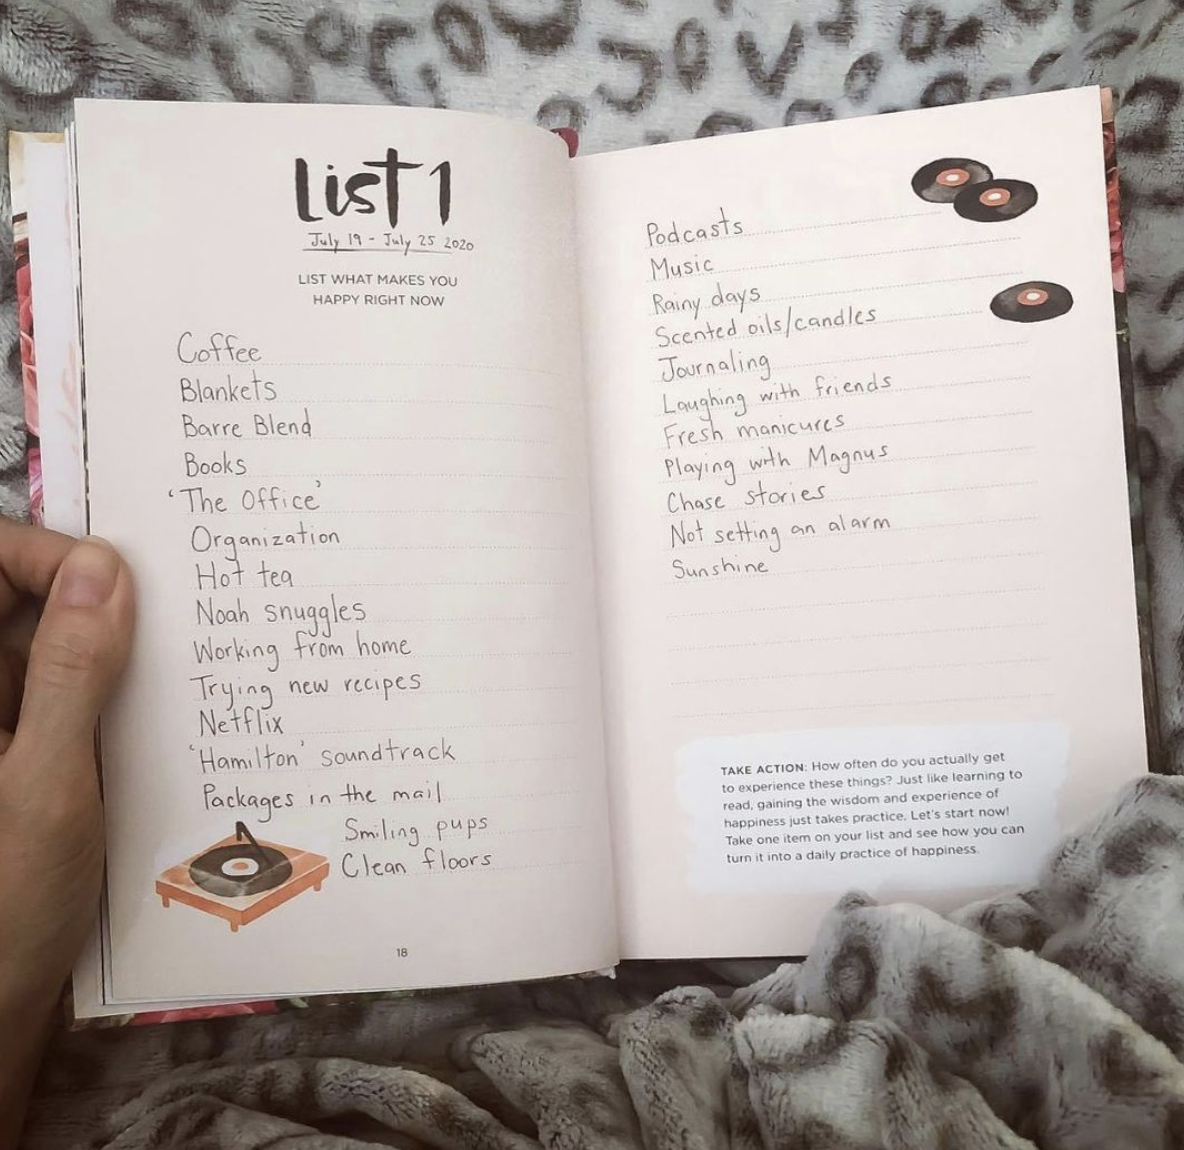 List 1
July 19 - July 25 2020
LIST WHAT MAKES YOU
HAPPY RIGHT NOW
Coffee
Blankets
Barre Blend
Books
'The Office'
Organization
Hot tea
Noah snuggles
Working from home
Trying new recipes
Netflix
'Hamilton' soundtrack
Packages in the mail
Smiling pups
Clean floors
18
Podcasts
Music
Rainy days
Scented oils/candles
Journaling
Laughing with friends
Fresh manicures
Playing with Magnus
Chase stories
Not setting an alarm
Sunshine
TAKE ACTION: How often do you actually get
to experience these things? Just like learning to
read, gaining the wisdom and experience of
happiness just takes practice. Let's start now!
Take one item on your list and see how you can
turn it into a daily practice of happiness.